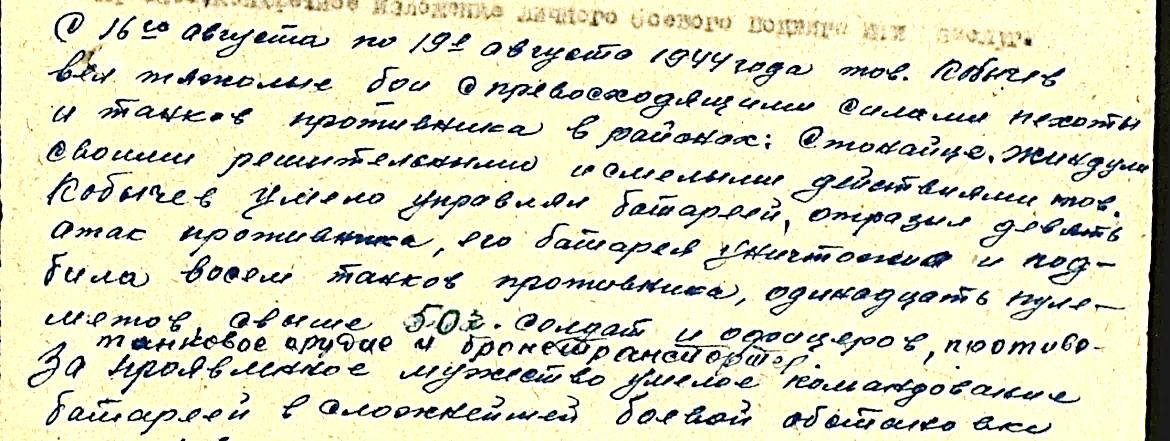 изложение личного боевого подвига или заслуг.
С 16го августа по 19е августа 1944 года тов. Кобычев
вел тяжолые бои с превосходящими силами пехоты
и танков противника в районах: Стокайце, Жиндули
своими решительными и смелыми действиями тов.
Кобычев умело управлял батареей, отразил девять
атак противника, его батарея уничтожила и под-
била восем танков противника, одинадцать пуле-
метов, свыше солдат и офицеров, противо-
танковое орудие и бронетранспортер
За проявленное мужество умелое командование
батареей в сложнейшей боевой обстановке